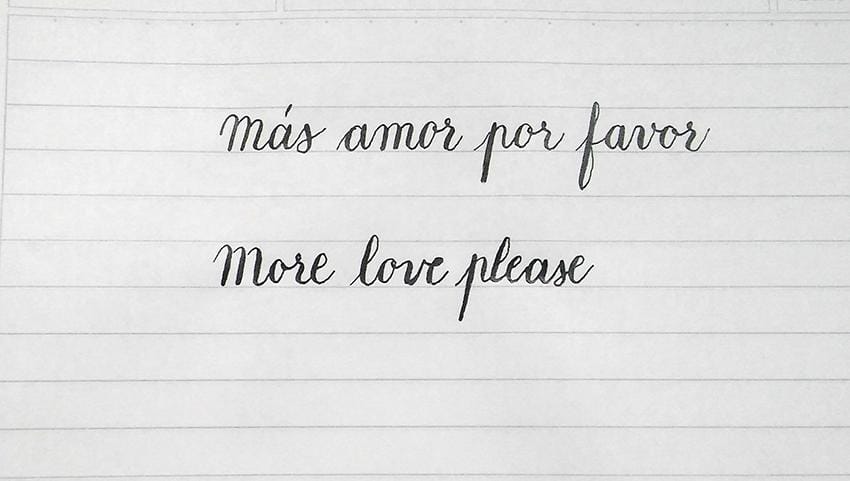 más amor por favor
More love please